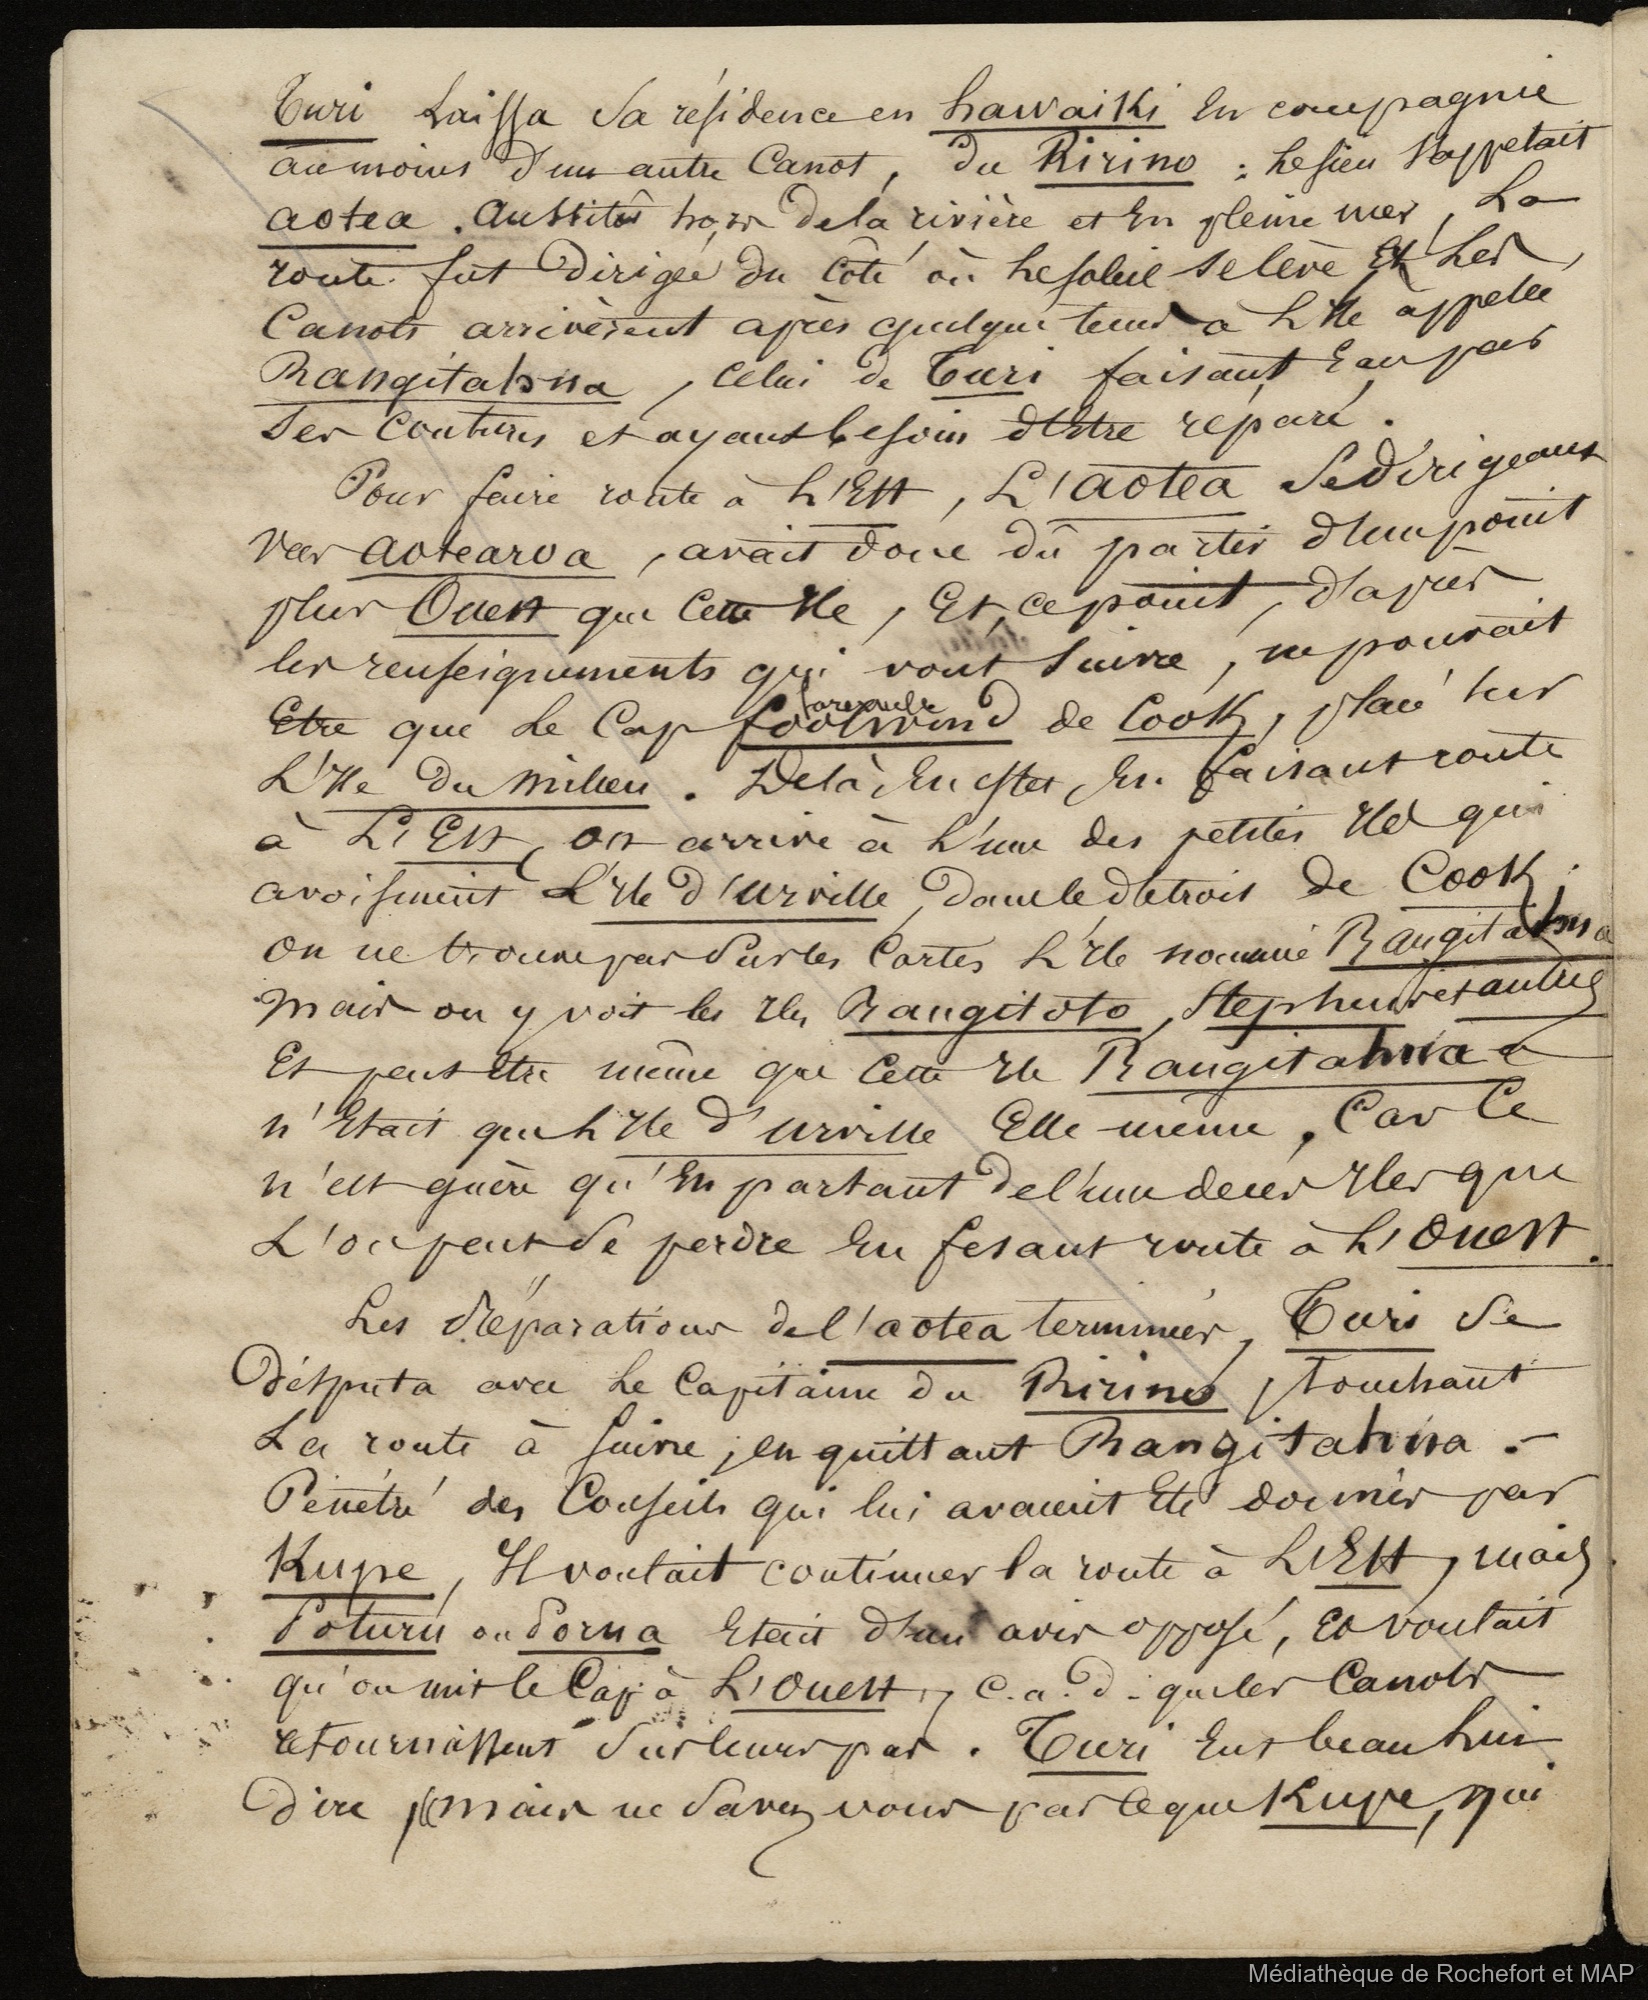 Turi Laissa sa résidence en hawaiki En compagnie
au moins d'un autre Canot, du Ririno ; le sien s'appelait
aotea. Aussitôt hors de la rivière et En pleine mer, La
route fut dirigée du Côté où le soleil se lève Et Les
Canots arrivèrent après quelque tems à L'Ile appelée
Rangitahua, Celui de Turi faisant Eau par
ses Coutures et ayant besoin d'Etre réparé.
Pour faire route à L'Est, L'aotea se dirigeant
vers aotearoa, avait donc dû partir d'un point
plus Ouest que Cette Ile, Et, ce point, d'après
les renseignements qui vont suivre, ne pouvait
Etre que Le Cap foolwind de Cook, placé sur
L'Ile du milieu. De là, En effet, En faisant route
à L'Est, on arrive à L'une des petites Iles qui
avoisinent L'Ile d'urville, dans le détroit de Cook;
on ne trouve pas sur les Cartes L'Ile nommée Rangitahua
mais on y voit les Iles Rangitoto, Stephens et autres
Et peut être même que Cette Ile Rangitahua
n'Etait que L'Ile d'urville Elle même, Car Ce
n'est guère qu'En partant de l'une de ces Iles que
L'on peut se perdre En fesant route à L'Ouest.
Les réparations de l'aotea terminées, Turi se
disputa avec Le Capitaine du Ririno, touchant
La route à suivre, en quittant Rangitahua. -
Pénétré des Conseils qui lui avaient Eté donnés par
Kupe, Il voulait continuer la route à L'Est, mais
Poturu ou Porua Etait d'un avis opposé, Et voulait
qu'on mit le Cap à L'Ouest, c.a.d. que les Canots
retournassent sur leurs pas. Turi Eut beau lui
dire « mais ne savez vous pas ce que Kupe, qui